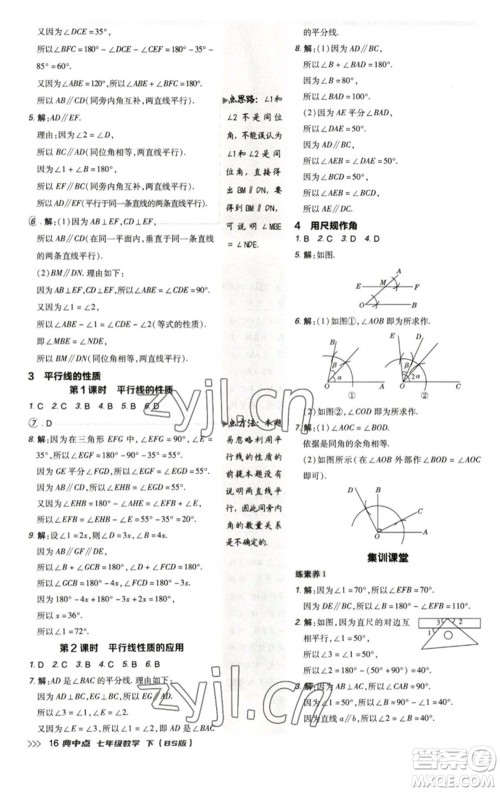 又因为∠DCE=35°,
所以∠BFC=180°-∠D-∠DCE=180°-35°-
85°=60°.
又因为∠B=120°,所以∠B+∠BFC=180°,
所以AB∥CD(同旁内角互补,两直线平行).
5. 解:AD∥EF.
理由:因为∠2=∠E,
所以BC∥EF(同位角相等,两直线平行).
又因为∠1+∠B=180°,
所以AD∥BC(同旁内角互补,两直线平行),
所以AD∥EF(平行于同一条直线的两条直线平行).
⑥. 解:(1)因为AB⊥EF,CD⊥EF,
所以AB∥CD(在同一平面内,垂直于同一条直线
的两条直线平行).
(2)BM∥DN. 理由如下:
因为AB⊥EF,CD⊥EF,
所以∠ABE=∠CDE=90°.
又因为∠1=∠2,
所以∠ABE-∠1=∠CDE-∠2(等式的性质),
即∠MBE=∠NDE,
所以BM∥DN(同位角相等,两直线平行).
3 平行线的性质
第1课时 平行线的性质
1. C 2. C 3. B 4. B 5. B 6. D
⑦. D
8. 解:因为在三角形EFG中,∠EFG=90°,∠E=
35°,所以∠EGF=180°-90°-35°=55°.
因为GE平分∠FGD,所以∠EGD=∠EGF=55°.
因为AB∥CD,所以∠EHB=∠EGD=55°.
又因为∠EHB+∠EFB+∠E=180°,
所以∠EFB=180°-∠EHB-∠E=20°.
9. 解:设∠1=2x,则∠D=3x,∠B=4x.
因为AB∥GF∥DE,
所以∠GCB=180°-∠B,∠FCD=180°-∠D.
因为∠1+∠GCB+∠FCD=180°,
所以180°-4x+2x+180°-3x=180°,所以
x=36°.
所以∠1=72°.
第2课时 平行线性质的应用
1. D 2. C 3. B 4. A 5. B 6. B
7. 解:AD是∠BAC的平分线. 理由如下:
因为AD⊥BC,EG⊥BC,
所以∠4=∠5=90°,
所以AD∥EG,
所以∠1=∠E,∠2=∠3.
因为∠E=∠3,所以∠1=∠2,所以AD是∠BAC
点思路:∠1和
∠2不是同位
角,不能误认为
∠1和∠2是同
位角,直接得
出BM∥DN,
要得到BM∥
DN,可说明
∠MBE=
∠NDE.
点方法:本题
易忽略利用平
行线的性质的
前提本题没有
说明两直线平
行,因此同旁内
角的数量关系
不一定成立.
的平分线.
8. 解:(1)因为AD∥BC,
所以∠B+∠BAD=180°.
又因为∠B=80°,
所以∠BAD=100°.
(2)因为AE平分∠BAD,
所以∠DAE=50°.
因为AD∥BC,
所以∠AEB=∠DAE=50°.
又因为∠BCD=50°,
所以∠AEB=∠BCD,
所以AE∥DC.
4 用尺规作角
1. B 2. C 3. D 4. D
5. 解:如图.
A
E
F
B
C
6. 解:(1)如图①,∠AOB即为所求.
(2)如图②,∠AOB即为所求.
B
O
α
A
①
B
O
2α
A
②
7. 解:(1)∠AOD=∠BOC.
依据是同角的余角相等.
(2)如图所示(在∠AOB外部作∠AOD=∠AOC
即可).
D
A
C
O
B
集训课堂
练素养1
1. 解:因为∠1=70°,所以∠EFB=∠1=70°.
3. 解:如图,因为直尺的对边互
相平行,∠1=35°,
所以∠3=∠1=35°.
3
1
2
16 典中点 七年级数学 下(BS版)
zyjl.cn
zyjl.cn